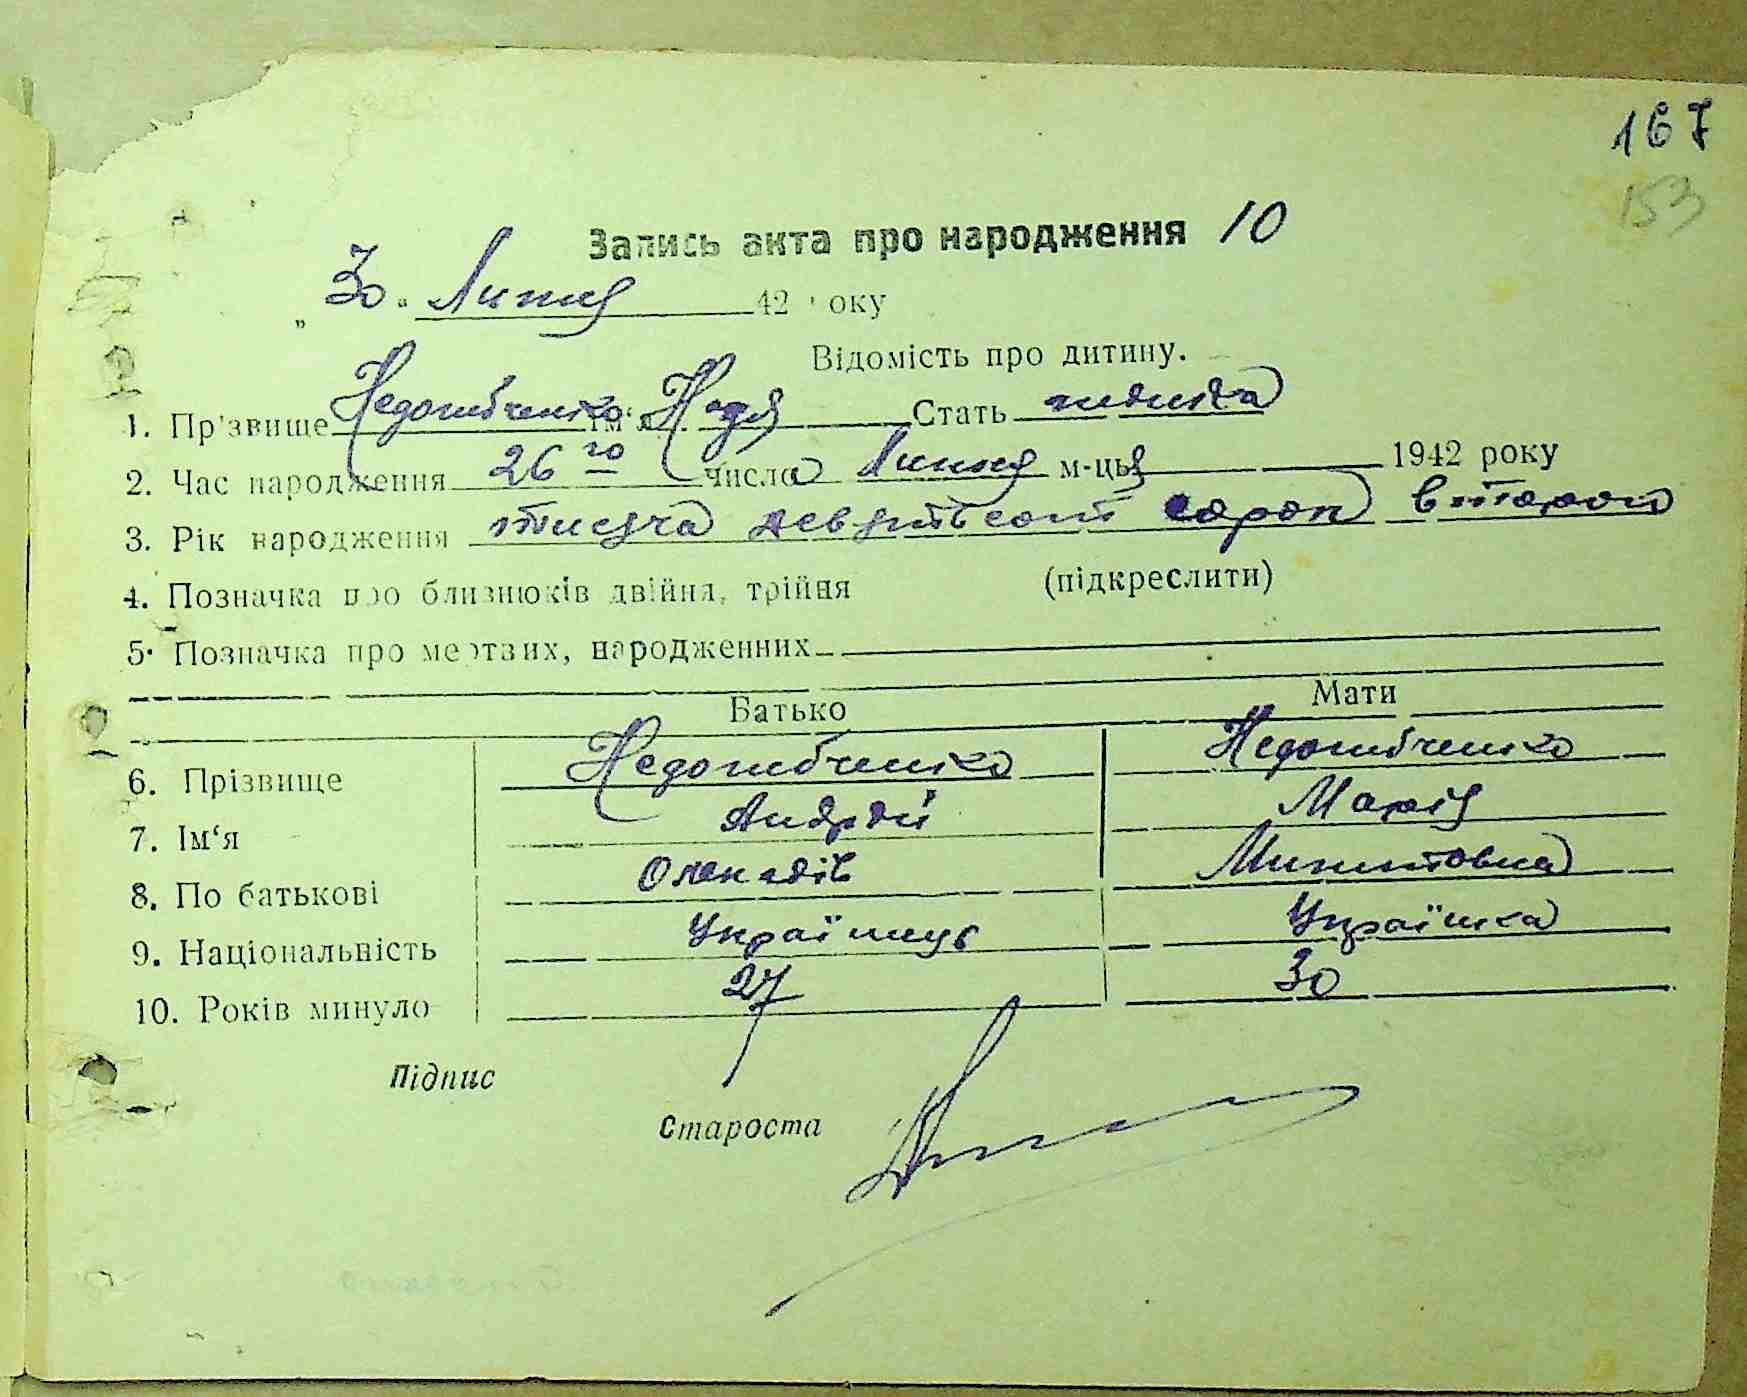 167
153
Запись акта про народження 10
„ 30 " Липня 42 року
Відомість про дитину.
1. Пр'звище Недогибченко Ім'я Надя Стать
2. Час народження 26го числа Липня м-ця 1942 року
3. Рік народження тисяча девятьсот сорок второй
4. Позначка про близнюків двійня, трійня (підкреслити)
5. Позначка про мертвих, народженних
Батько Мати
6. Прізвище Недогибченко Недогибченко
7. Ім‘я Андрій Марія
8. По батькові Микитовна
9. Національність Українець Українка
10. Років минуло 27 30
Підпис
Староста